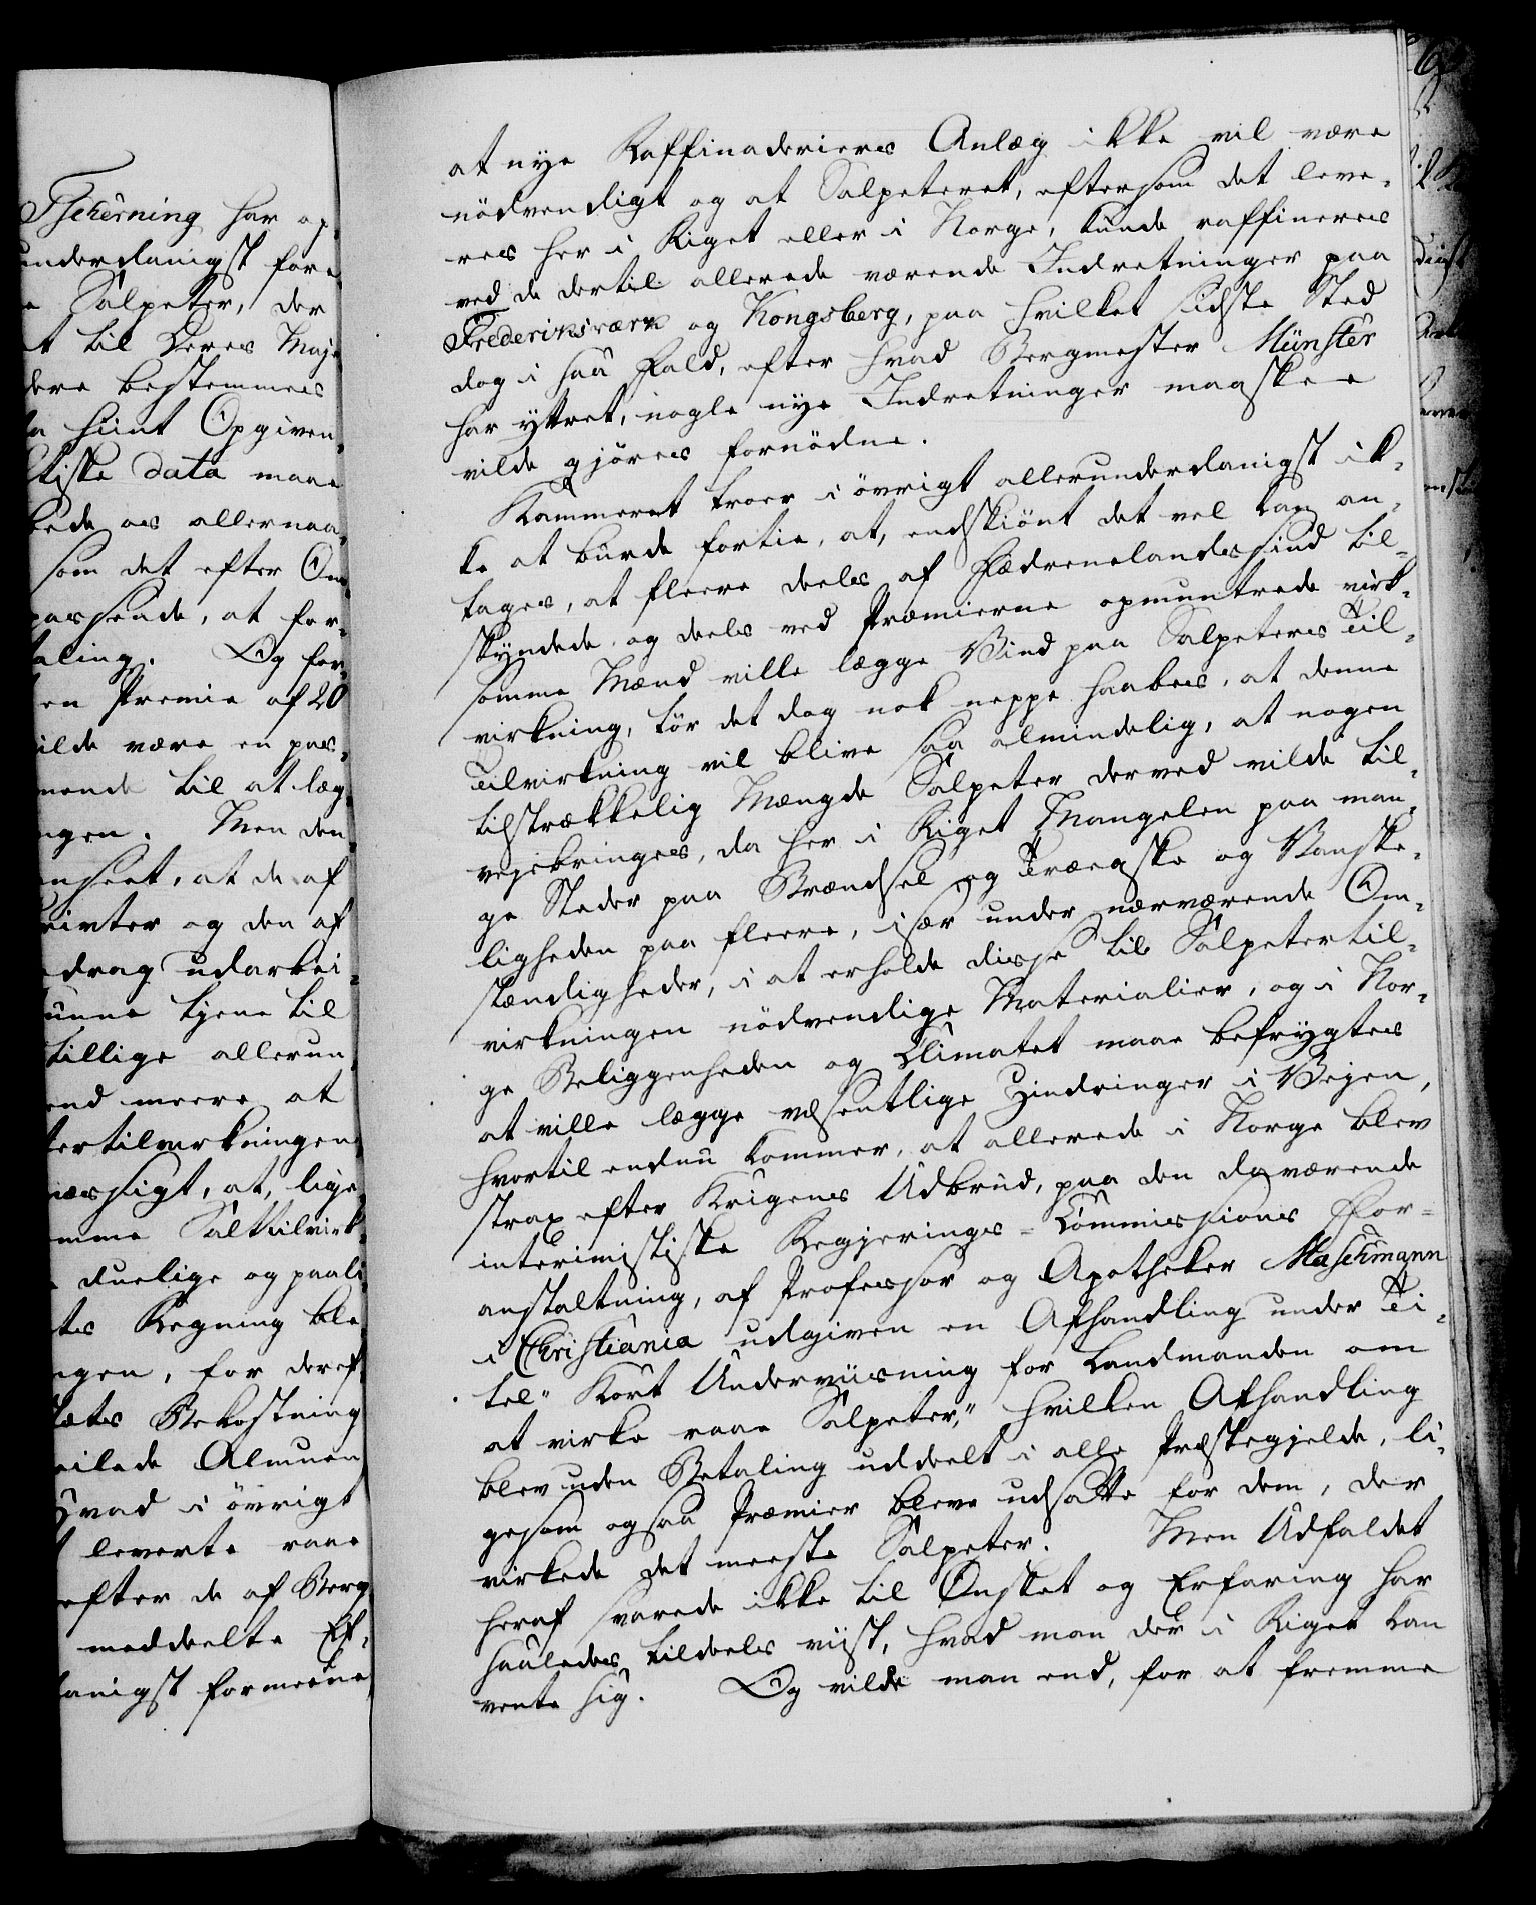 Tscherning har op-
underdanigst fore
Salpeter, der
t til Deres Maje
dere bestemmes
hiint Opgiven,
ktiske data maae
bede os allernaa,
som det efter Om
passende, at for,
aling. Og for,
en Præmie af 20
ilde være en pas,
mende til at læg
ngen. Men den
nseet, at de af
Printer og den af
drag udarbei,
unne tjene til
tillige allerun
end meere at
tertilvirkningen
mæssigt, at, lige
mme Salttilvirk
duelige og paali
tes Regning ble
ngen, for deref
tets Bekostning
eilede Almuen
Hvad i øvrigt
leverte raae
efter de af Berg
meddeelte Ef,
danigst formeene
at nye Raffinaderiers Anlæg ikke vil være
nödvendigt og at Salpeteret, eftersom det leve,
res her i Riget eller i Norge, kunde raffineres
ved de dertil allerede værende Indretninger paa
Frederiksværk og Kongsberg, paa hvilket sidste Sted
dog i saa Fald, efter hvad Bergmester Münster
har yttret, nogle nye Indretninger maaskee
vilde gjöres fornödne.
Kammeret troer i övrigt allerunderdanigst ik,
ke at burde fortie, at, endskiönt det vel kan an,
tages, at fleere deels af Fædrenelandssind til,
skyndede og deels ved Præmierne opmuntrede virk,
somme Mænd ville lægge Vind paa Salpeters Til,
virkning, tör det dog nok neppe haabes, at denne
Tilvirkning vil blive saa almindelig, at nogen
tilstrækkelig Mængde Salpeter derved vilde til,
vejebringes, da her i Riget Mangelen paa man,
ge Steder paa Brændsel og Træeaske og Vanske,
ligheden paa fleere, især under nærværende Om,
stændigheder, i at erholde disse til Salpetertil,
virkningen nödvendige Materialier, og i Nor,
ge Beliggenheden og Climatet maae befrygtes
at ville lægge væsentlige Hindringer i Vejen,
hvortil endnu kommer, at allerede i Norge blev
strax efter Krigens Udbrud, paa den daværende
interimistiske Regjerings-Commissions For-
anstaltning, af Professor og Apotheker Maschmann
i Christiania udgiven en Afhandling under Ti,
tel "Kort Underviisning for Landmanden om
at virke raae Salpeter," hvilken Afhandling
blev uden Betaling uddeelt i alle Præstegjelde, li,
gesom ogsaa Præmier bleve udsatte for dem, der
virkede det meeste Salpeter. Men Udfaldet
heraf svarede ikke til Önsket og Erfaring har
saaledes tildeels viist, hvad man der i Riget kan
vente sig. Og vilde man end, for at fremme